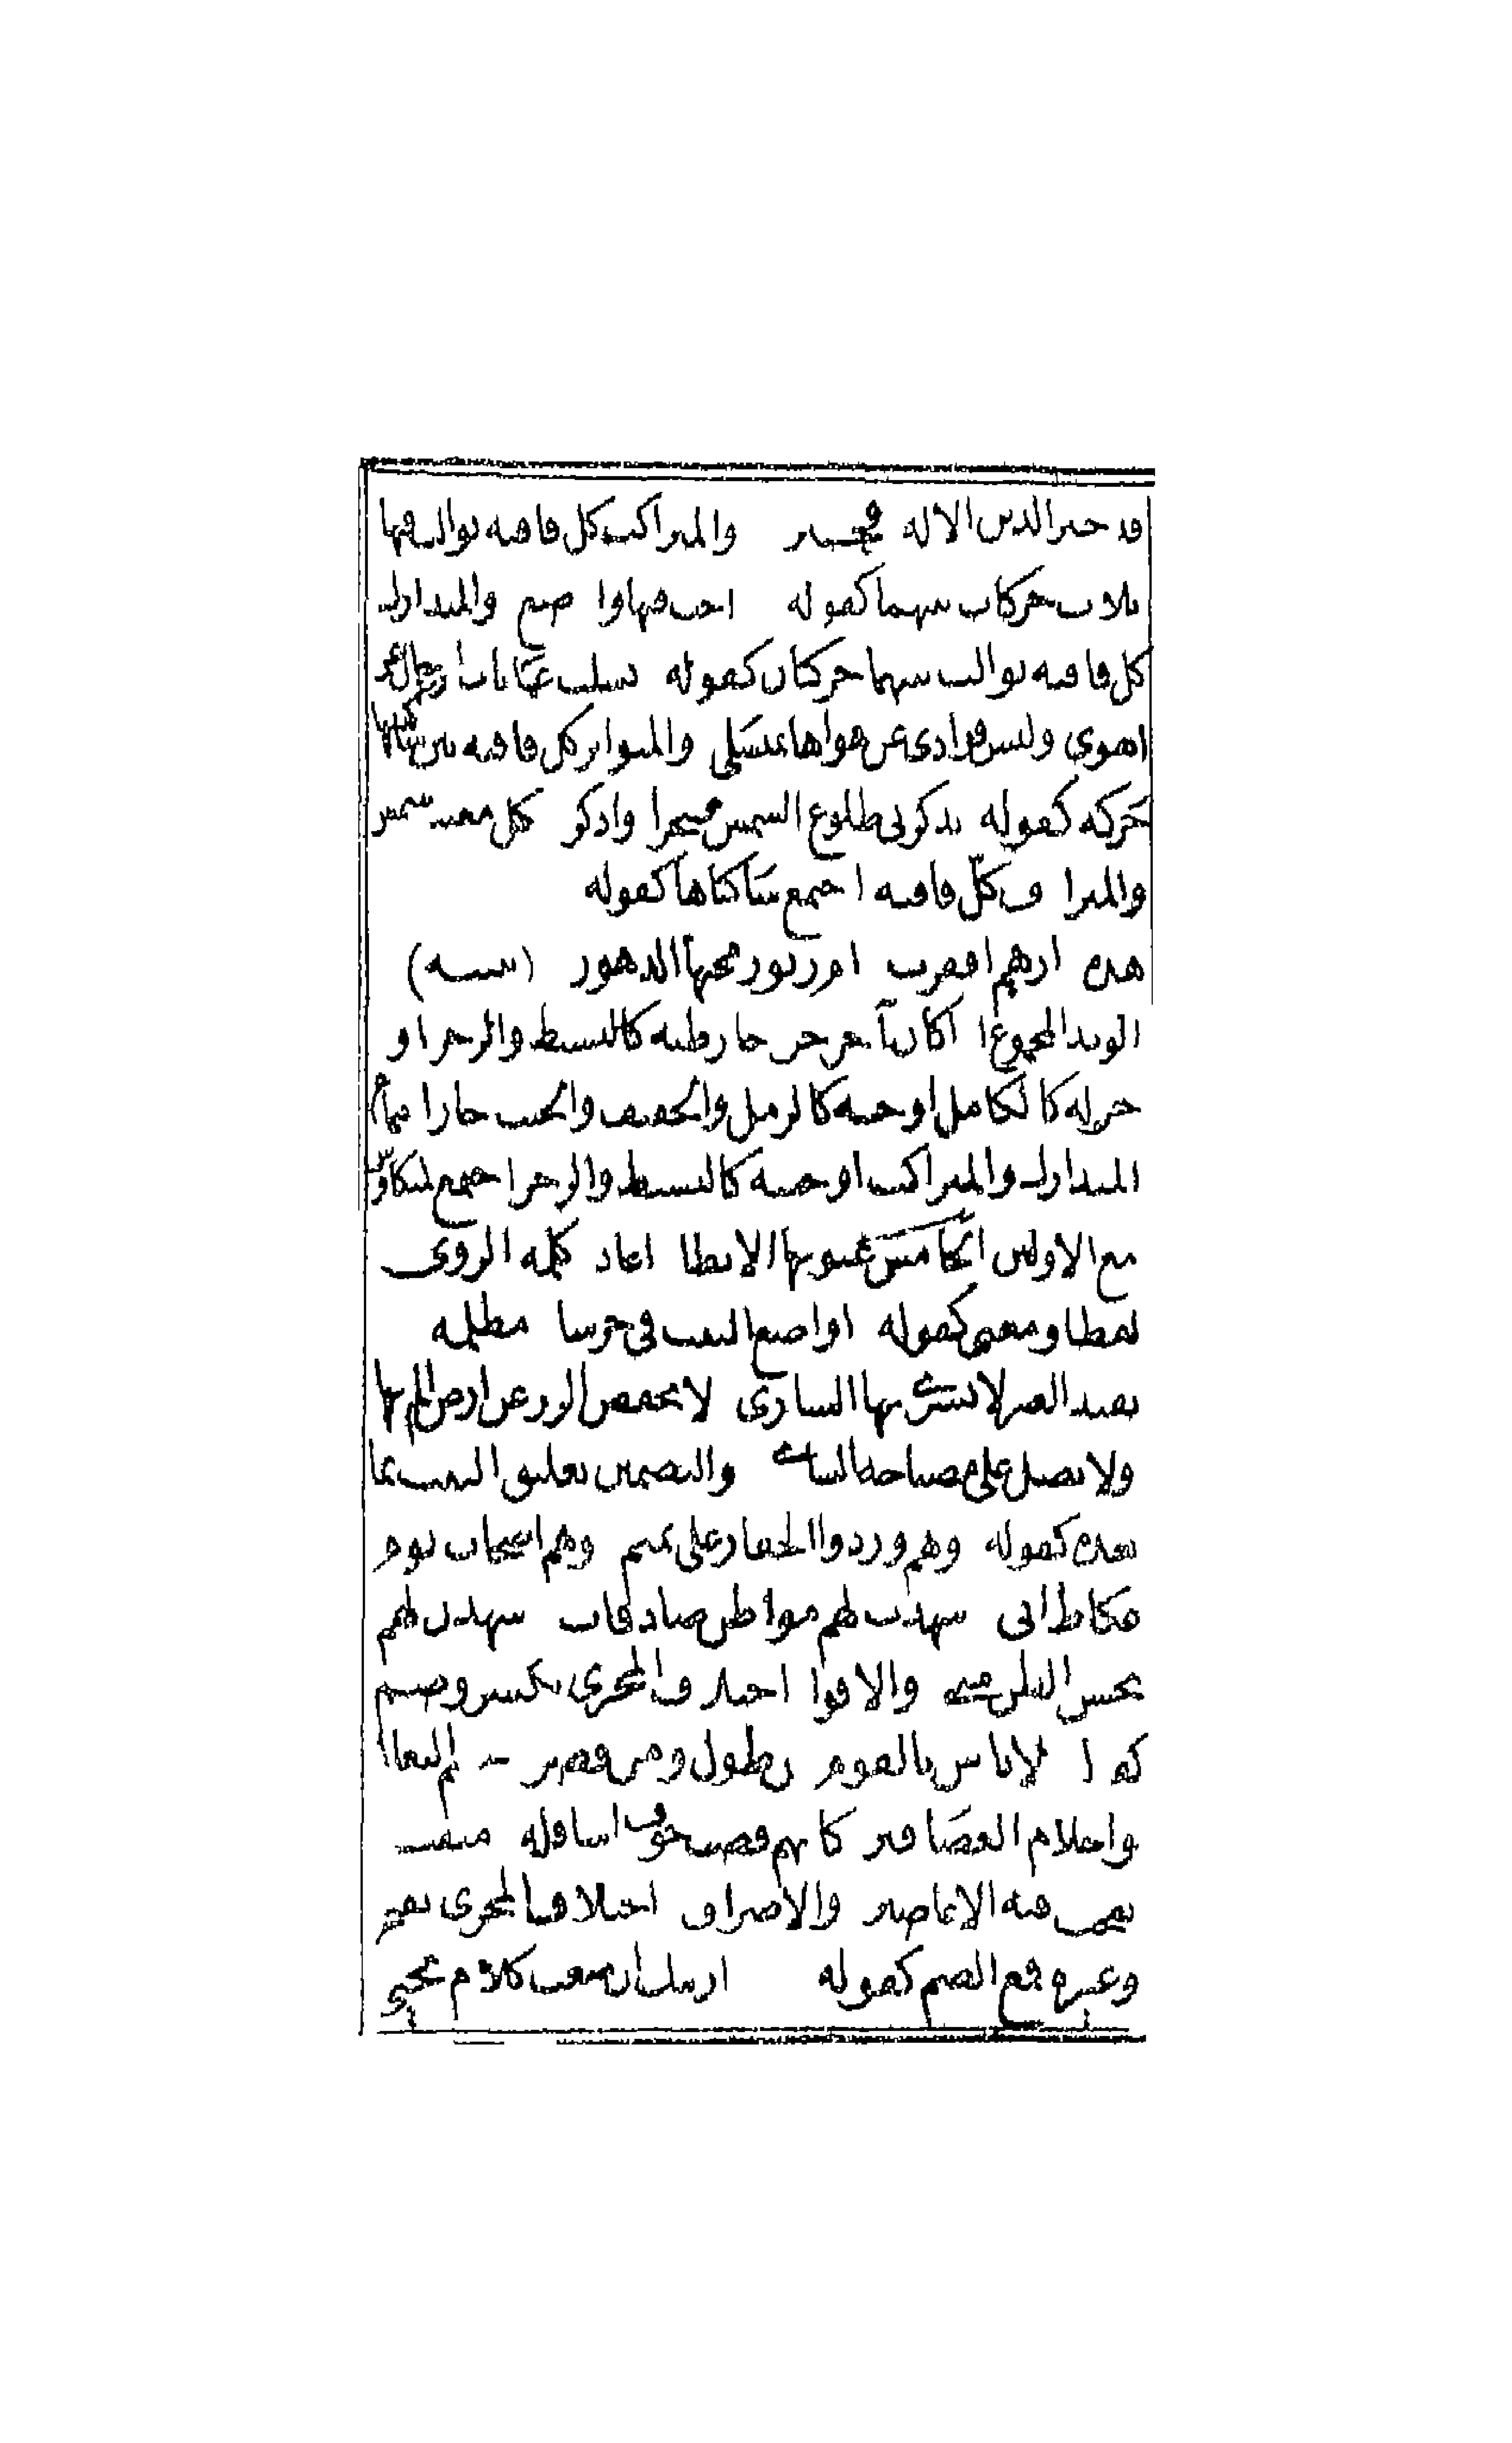 قد جبر الدين الاله فجبر والمتراكب كل قافية توالت فيها
ثلاث حركات بينهما كقوله اخب فيها واضع والمتدارك
كل قافية توالت بينهما حركتان كقوله تسلت عمايات الرجال عن
الهوى وليس فوادى عن هواها بمنسلى والمتواتر كل قافية بين ساكنيها
حركة كقوله يذكرنى طلوع الشمس صخرا واذكره كل مغيب شمس
والمترادف كل قافية اجتمع ساكناها كقوله
هذه دارهم اقفرت ام زبور محتها الدهور (تنبيه)
الوتد المجموع اذا كان آخر جزء جاز طيه كالبسيط والرجز او
خزله كالكامل او خبنه كالرمل والخفيف والخبب جاز اجتماع
المتدارك والمتراكب او خبنه كالبسيط والرجز اجتمع المتكاوس
مع الاولين الخامس عيوبها الايطا اعادة كلمة الروى
لفظا ومعنى كقوله اواضع البيت فى خرسا مظلمة
تقيد العير لا يسرى بها السارى لا يخفض الرز عن ارض الم بها
ولا يضل على مصباحه السارى والتضمين تعليق البيت بما
بعده كقوله وهم وردوا الجفار على تميم وهم اصحاب يوم
عكاظ انى شهدت لهم مواطن صادقات شهدن لهم
بحسن الظن منى والاقوا اختلاف المجرى بكسر وضم
كقوله لا باس بالقوم من طول ومن قصر جسم البغال
واحلام العصافير كانهم قصب جوف اسافله مثقب
نفخت فيه الاعاصير والاصراف اختلاف المجرى بفتح
وغيره فمع الضم كقوله اريتك ان منعت كلام يحيى